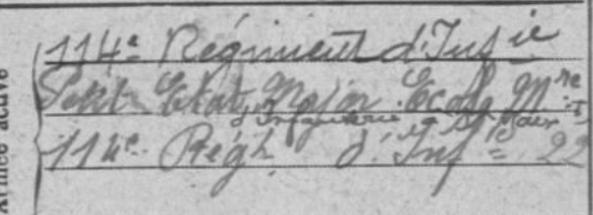 114e Régiment d'Infie
Petit Etat Major Ecole Mre
d'Infanterie St Maix
114e Régt d'Inf= 22
Armée active